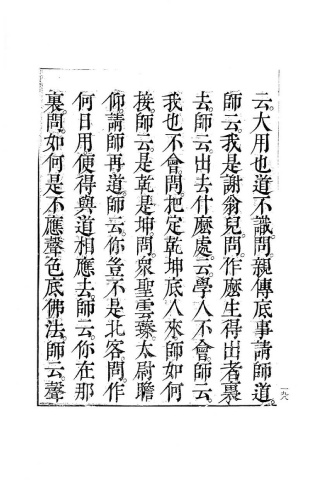 云。大用也道不識。問。親傳底事請師道。
師云。我是謝翁兒。問。作麼生得出者裏
去。師云。出去什麼處。云。學人不會。師云。
我也不會。問。把定乾坤底人來。師如何
接。師云。是乾是坤。問。衆聖雲臻。太尉瞻
仰。請師再道。師云。你豈不是北客。問。作
何日用。便得與道相應去。師云。你在那
裏。問。如何是不應聲色底佛法。師云。聲
一九八